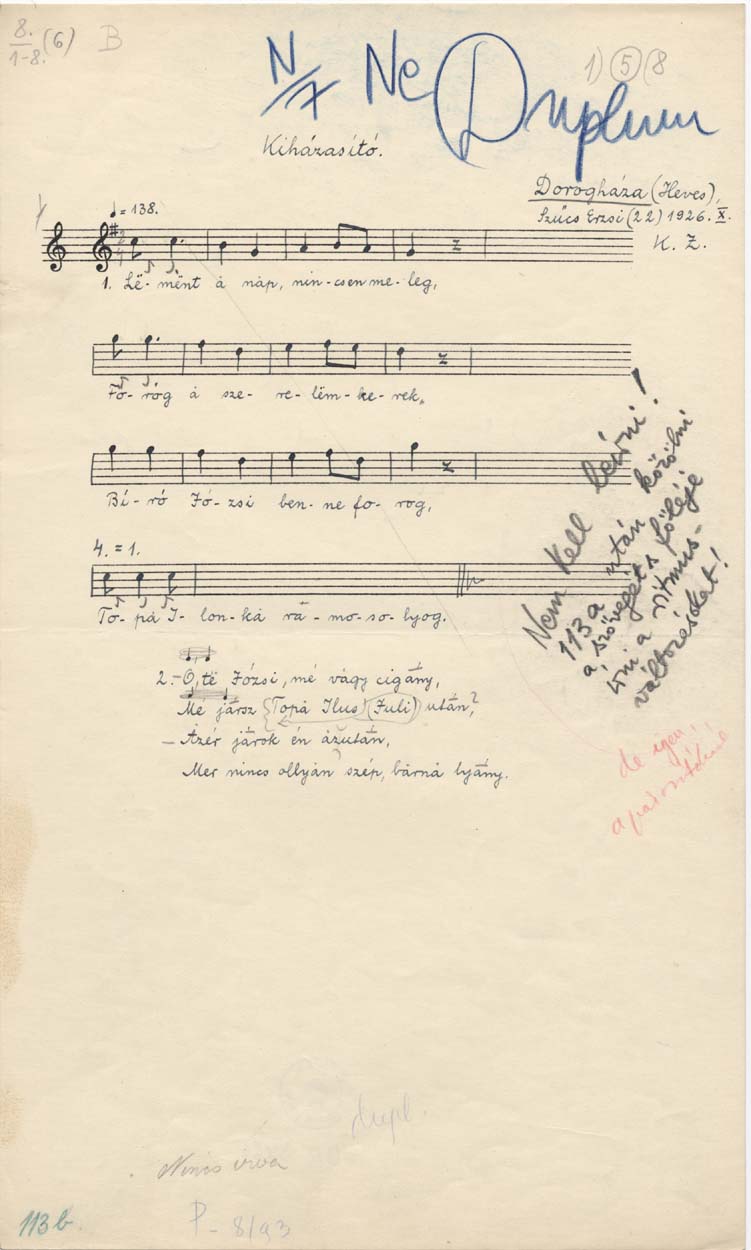 8.
1-8. (6) B
N/7 Ne Duplum
1) 5 (8
Kiházasító.
Dorogháza (Heves),
Szűcs Erzsi (22) 1926. X.
K. Z.
♩ = 138.
1. Lë- mënt á náp, nin-csen me-leg,
Fo- rog á sze- re-lëm-ke-rek,
Bí-ró Jó-zsi ben-ne fo-rog,
4. = 1.
To- pá I-lon-ká rá-mo-so-lyog.
2.- Ó, të Józsi, mé vágy cigány,
Mé jársz {Topá Ilus (Juli) után,?
- Ázér járok én ázután,
Mer nincs ollyán szép, bárná lyány.
Nem kell leírni!
113 a után közölni
a szövegét s föléje
írni a ritmus-
változásokat!
de igen!
dupl.
Nincs írva
113 b.
P- 8/93